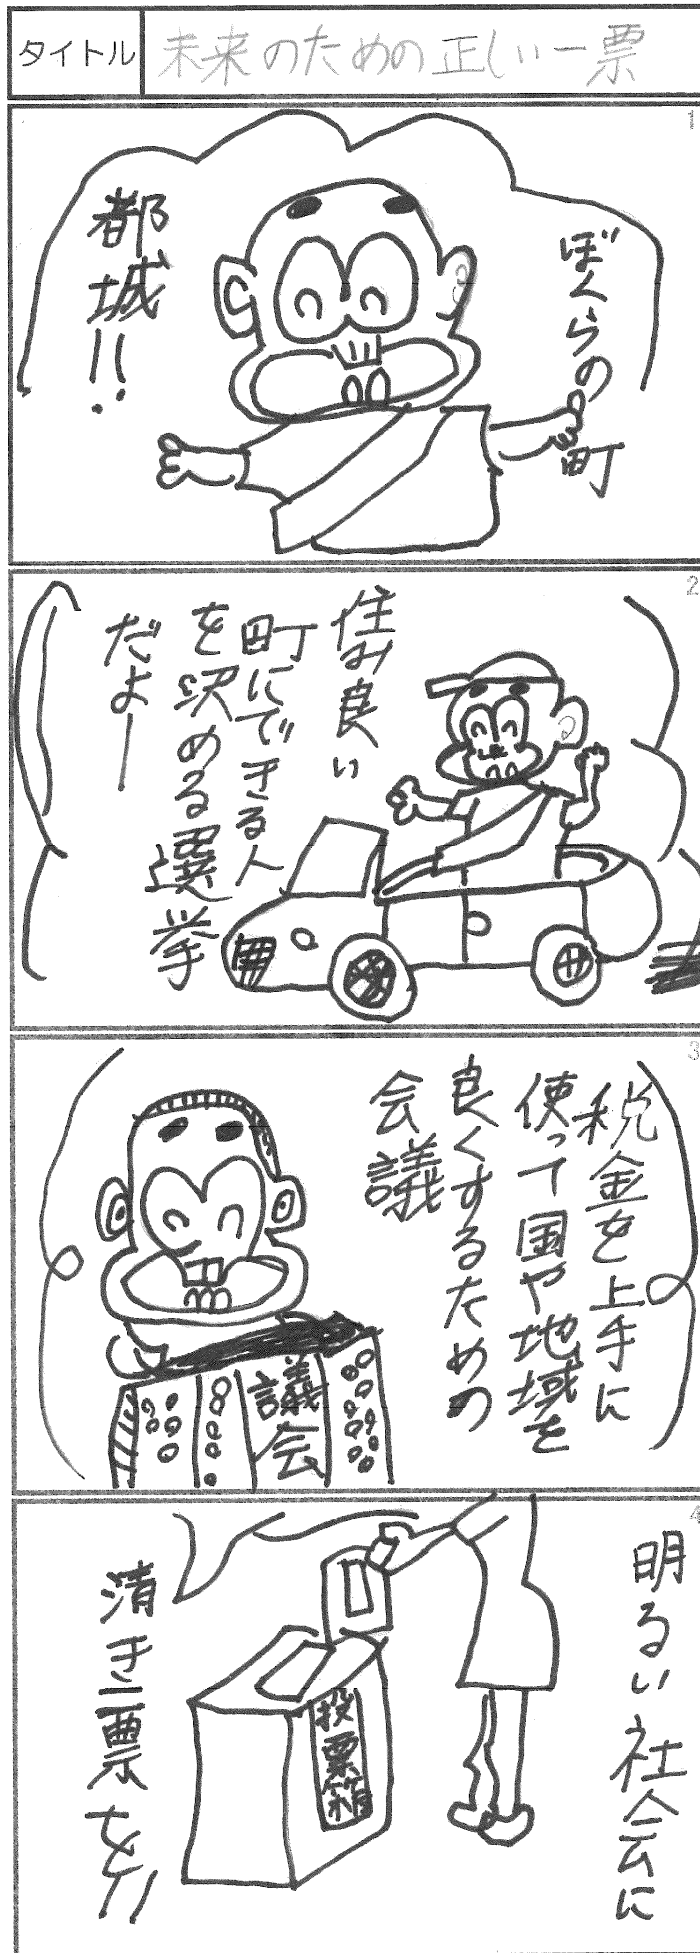 タイトル
未来のための正しい一票
1
ぼくらの町
都城!!
2
住み良い
町にできる人
を決める選挙
だよー
3
税金を上手に
使って国や地域を
良くするための
会議
議会
4
明るい社会に
清き一票を!!
投票箱